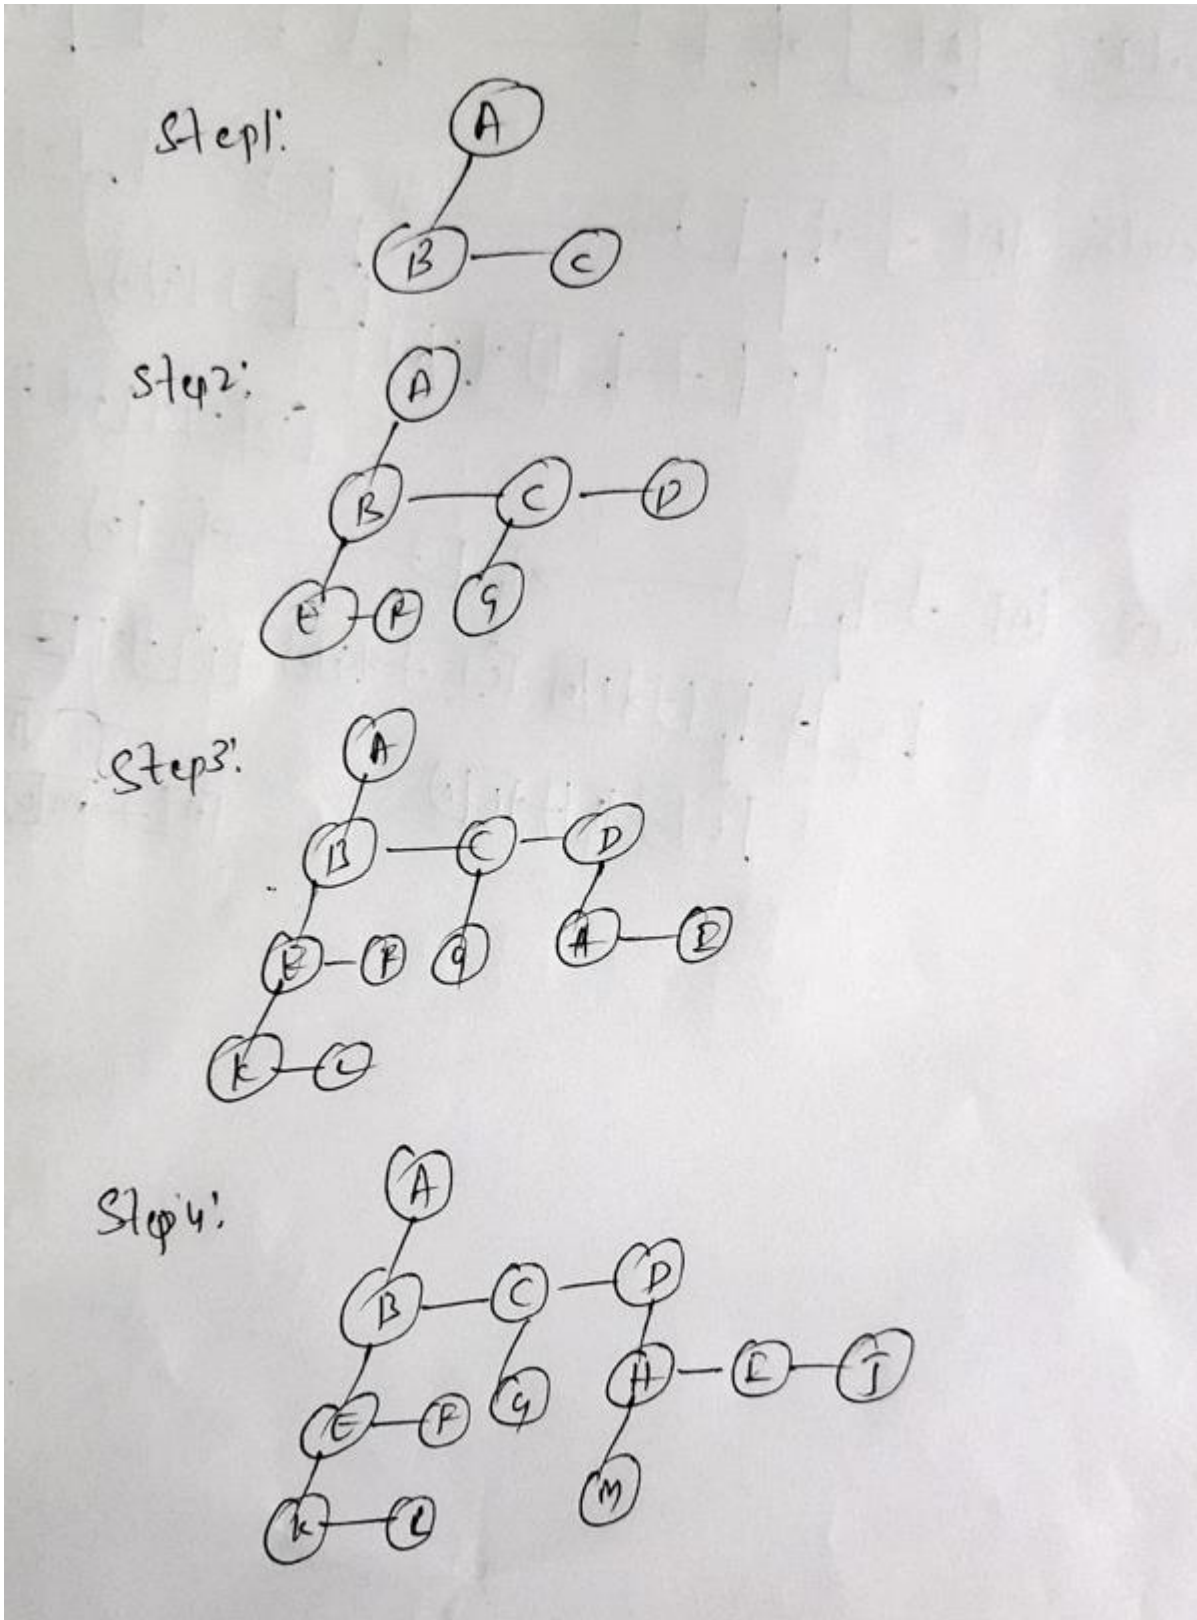 Step1:
A
B C
Step2:
A
B C D
E F G
Step3:
A
B C D
E F G H
K L
Step4:
A
B C D
H I J
E F G
M
K L